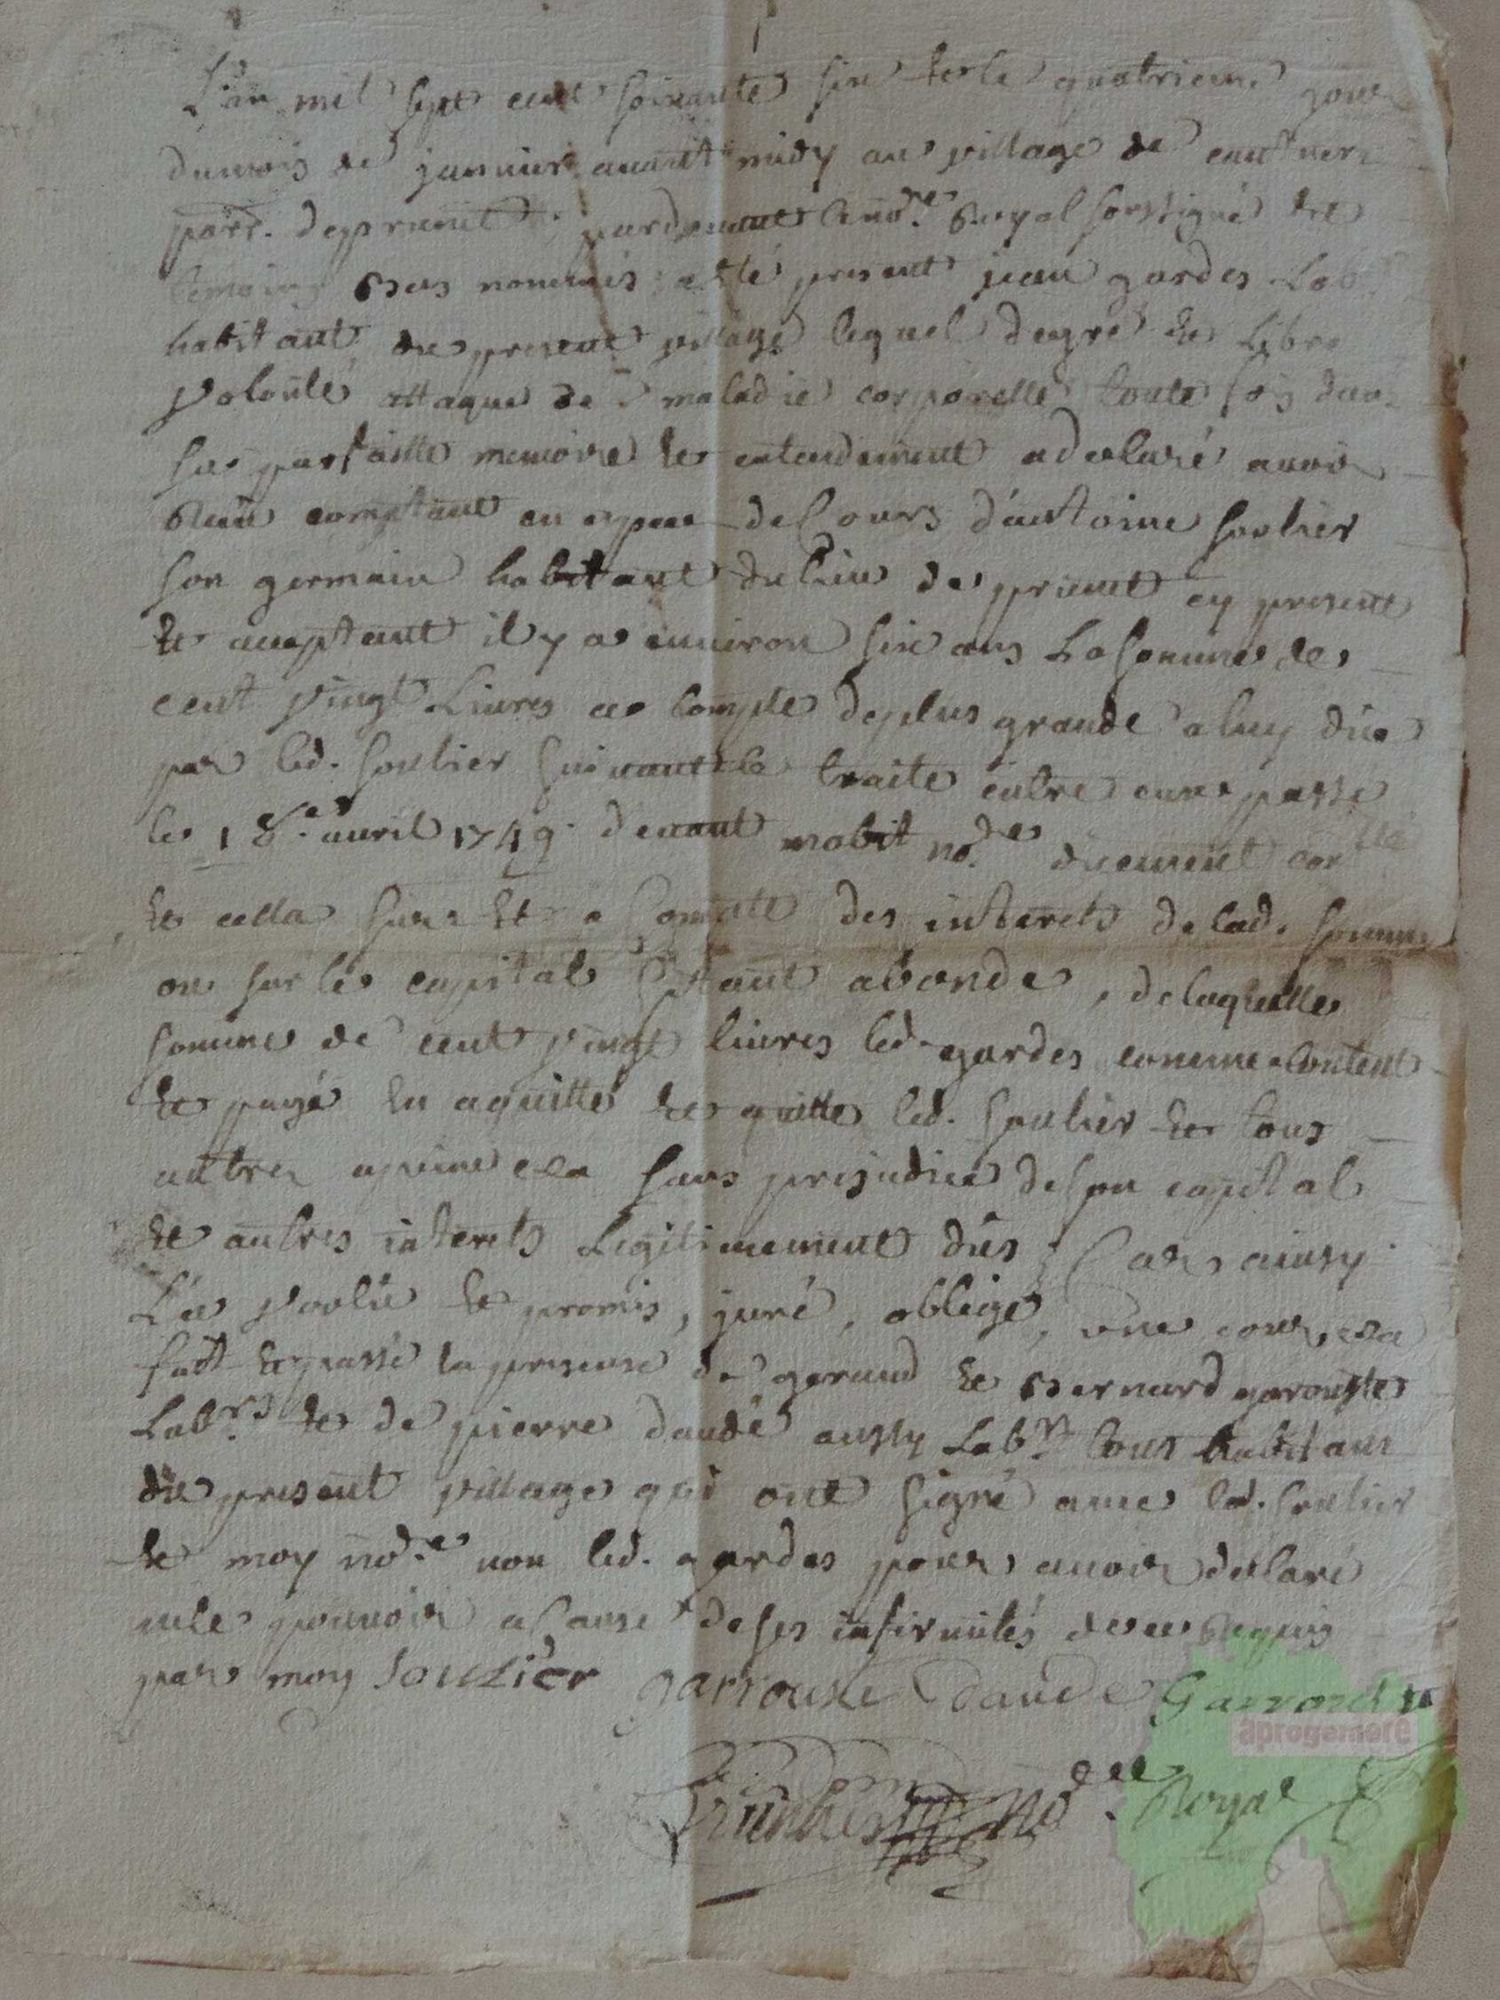 L'an mil sept cent soixante six et le quatrieme jour
du mois de janvier avant midy au village de
parr. deprunet pardevant le nore Royal soussigné et
temoins bas nommés a esté present jean gardes Labr
habitant du present village lequel de gré et Libre
volonté attaqué de maladie corporelle toute fois dans
sa parfaitte memoire et entendement a declaré avoir
Reçu comptant en espece de Cours d'antoine soulier
son germain habitant du lieu de prunet cy present
et aceptant il y a environ six ans La somme de
cent vingt Livres a compte de plus grande a luy düe
par led. soulier suivant le traité entre eux passé
le 18e avril 1749 devant mabit nore düement conllé
et cella sur et a Compte des interets de lad. somme
ou sur le capital sy tant abonde, de laquelle
somme de cent vingt livres led. gardes comme content
et payé en aquitte et quitte led. soulier et tous
autres a peine &a sans prejudice de son capital
et autres interets Legitimement düs, Car ainsy
L'a voulu et promis, juré, obligé, une cour, &a
fait et passé en presence de geraud et Bernard garouste
Labrs et de pierre daudé aussy Labr tous habitans
du present village qui ont signé avec led. soulier
et moy nore non led. gardes pour avoir declaré
ne le pouvoir a Cause de ses infirmités de ce Requis
par moy Soulier garrouste Daude Garrouste
nore Royal
aprogemere